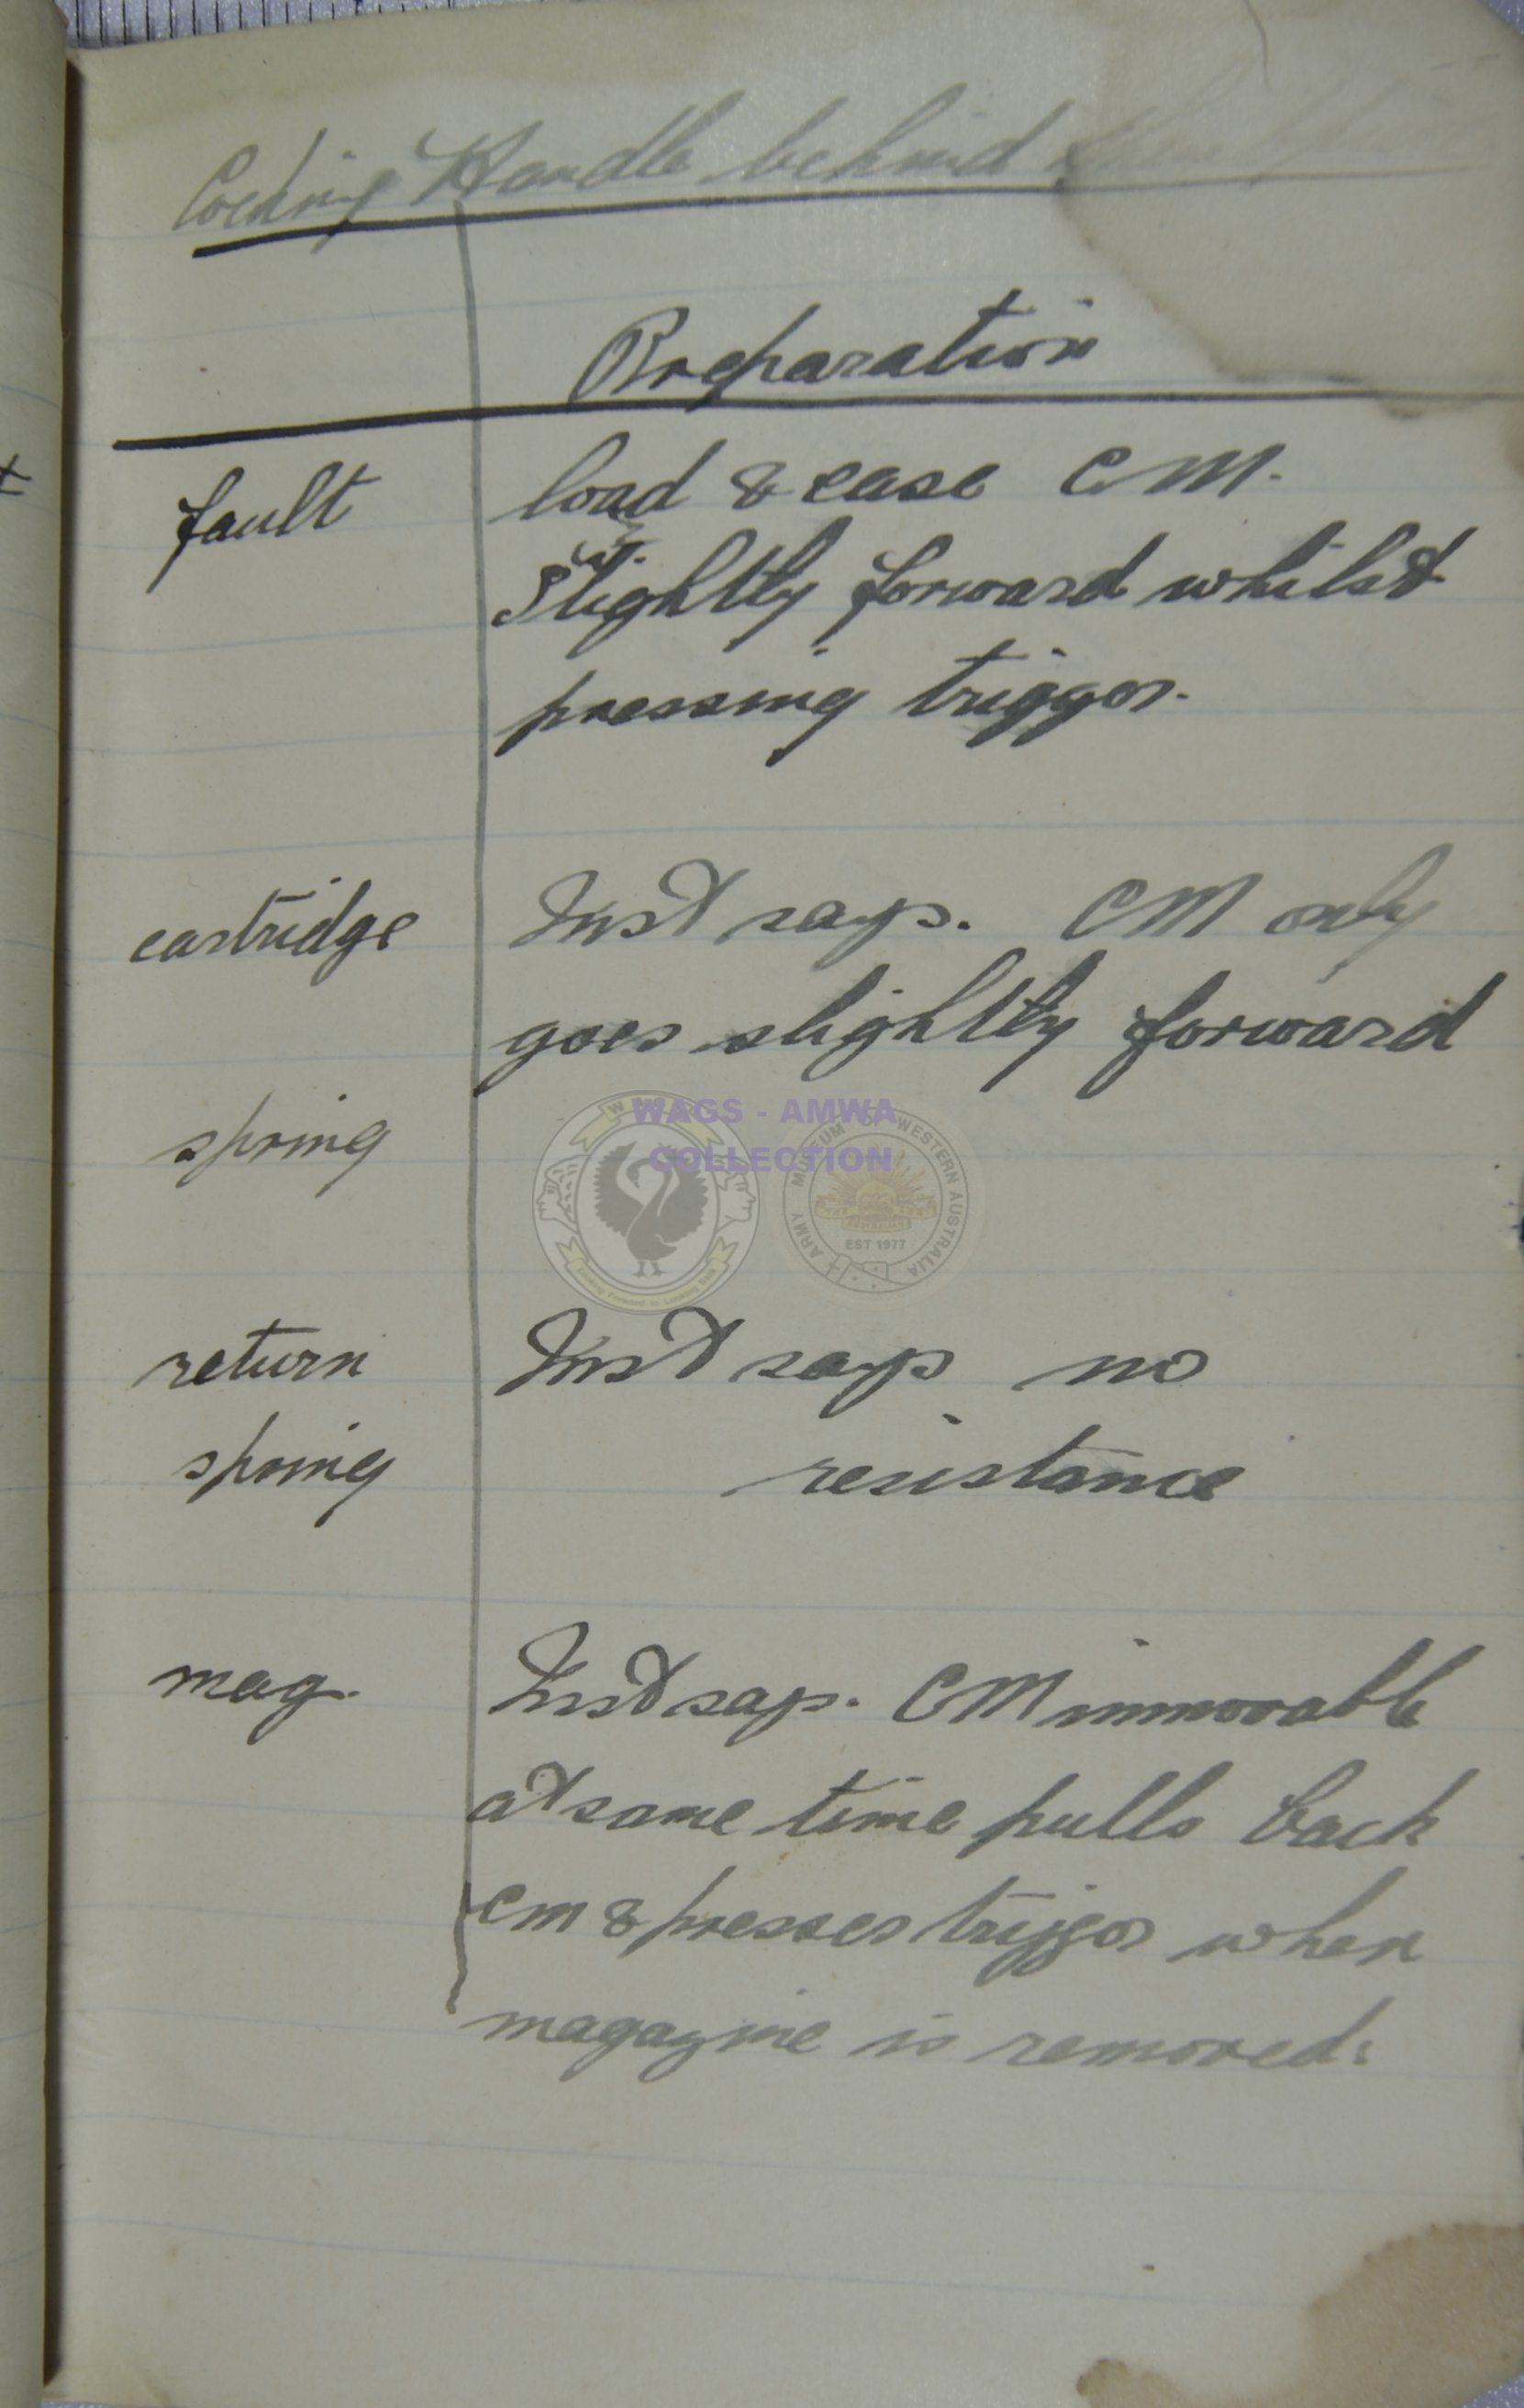 Cocking Handle behind
Preparation
fault load & ease CM.
Slightly forward whilst
pressing trigger.
cartridge Inst says. CM only
goes slightly forward
spring
return Inst says no
spring resistance
mag. Inst says. CM immovable
at same time pulls back
CM & presses trigger when
magazine is removed.
WAGS - AMWA
COLLECTION
ARMY MUSEUM OF WESTERN AUSTRALIA
EST 1977